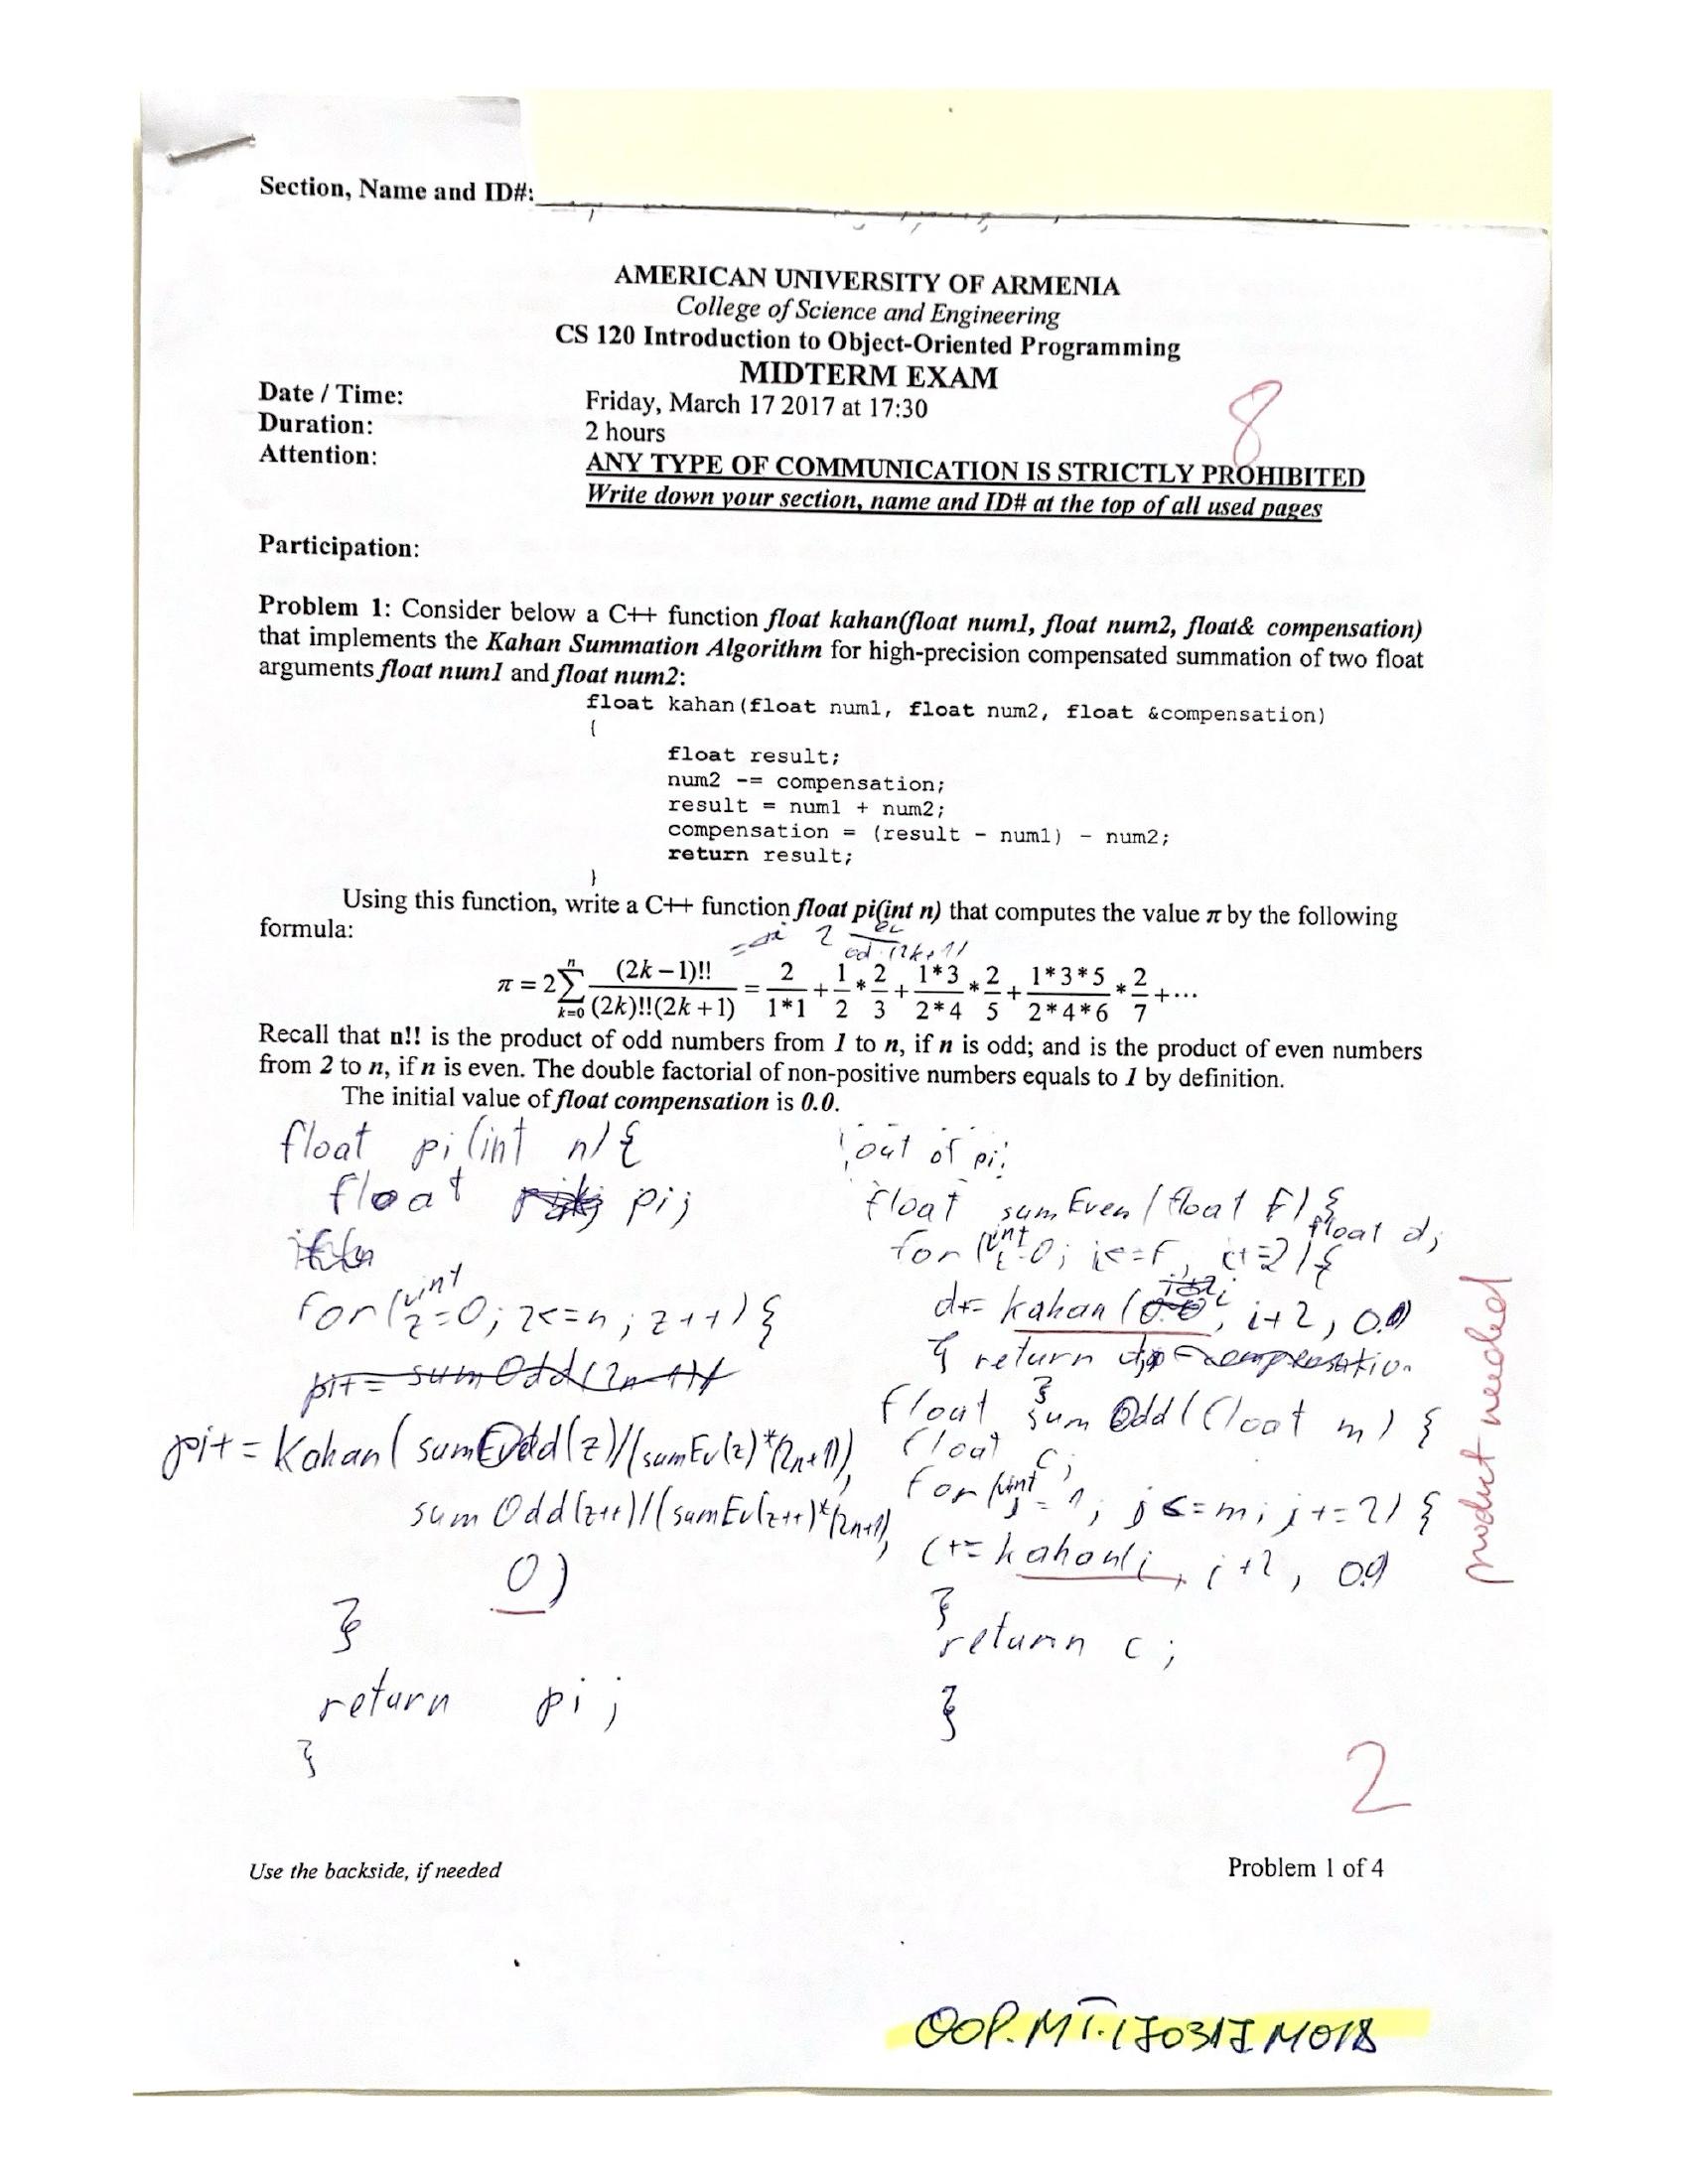 Section, Name and ID#:
AMERICAN UNIVERSITY OF ARMENIA
College of Science and Engineering
CS 120 Introduction to Object-Oriented Programming
MIDTERM EXAM
Date / Time: Friday, March 17 2017 at 17:30
8
Duration: 2 hours
Attention: ANY TYPE OF COMMUNICATION IS STRICTLY PROHIBITED
Write down your section, name and ID# at the top of all used pages
Participation:
Problem 1: Consider below a C++ function float kahan(float num1, float num2, float& compensation)
that implements the Kahan Summation Algorithm for high-precision compensated summation of two float
arguments float num1 and float num2:
float kahan(float num1, float num2, float &compensation)
{
float result;
num2 -= compensation;
result = num1 + num2;
compensation = (result - num1) - num2;
return result;
}
Using this function, write a C++ function float pi(int n) that computes the value π by the following
formula:
π = 2∑ (k=0, n) (2k−1)!! / (2k)!!(2k+1) = 2/1*1 + 1/2 * 2/3 + 1*3/2*4 * 2/5 + 1*3*5/2*4*6 * 2/7 + ···
Recall that n!! is the product of odd numbers from 1 to n, if n is odd; and is the product of even numbers
from 2 to n, if n is even. The double factorial of non-positive numbers equals to 1 by definition.
The initial value of float compensation is 0.0.
float pi(int n) {
float pi;
for(int z=0; z<=n; z++) {
pi+= sumOdd(2n-1)
pi+= Kahan( sumOdd(z)/(sumEv(z)*(2n+1)),
sumOdd(z++)/(sumEv(z++)*(2n+1),
0)
}
return pi;
}
out of pi:
float sumEven(float F) {
float d;
for (int i=0; i<=F, i+=2) {
d+= kahan( i, i+2, 0.0)
} return d;
}
float sumOdd(float m) {
float c;
for(int j=1; j<=m; j+=2) {
c+= kahan(j, j+2, 0.0)
}
return c;
}
product needed
2
Use the backside, if needed
Problem 1 of 4
OOP.MT.170317.M018